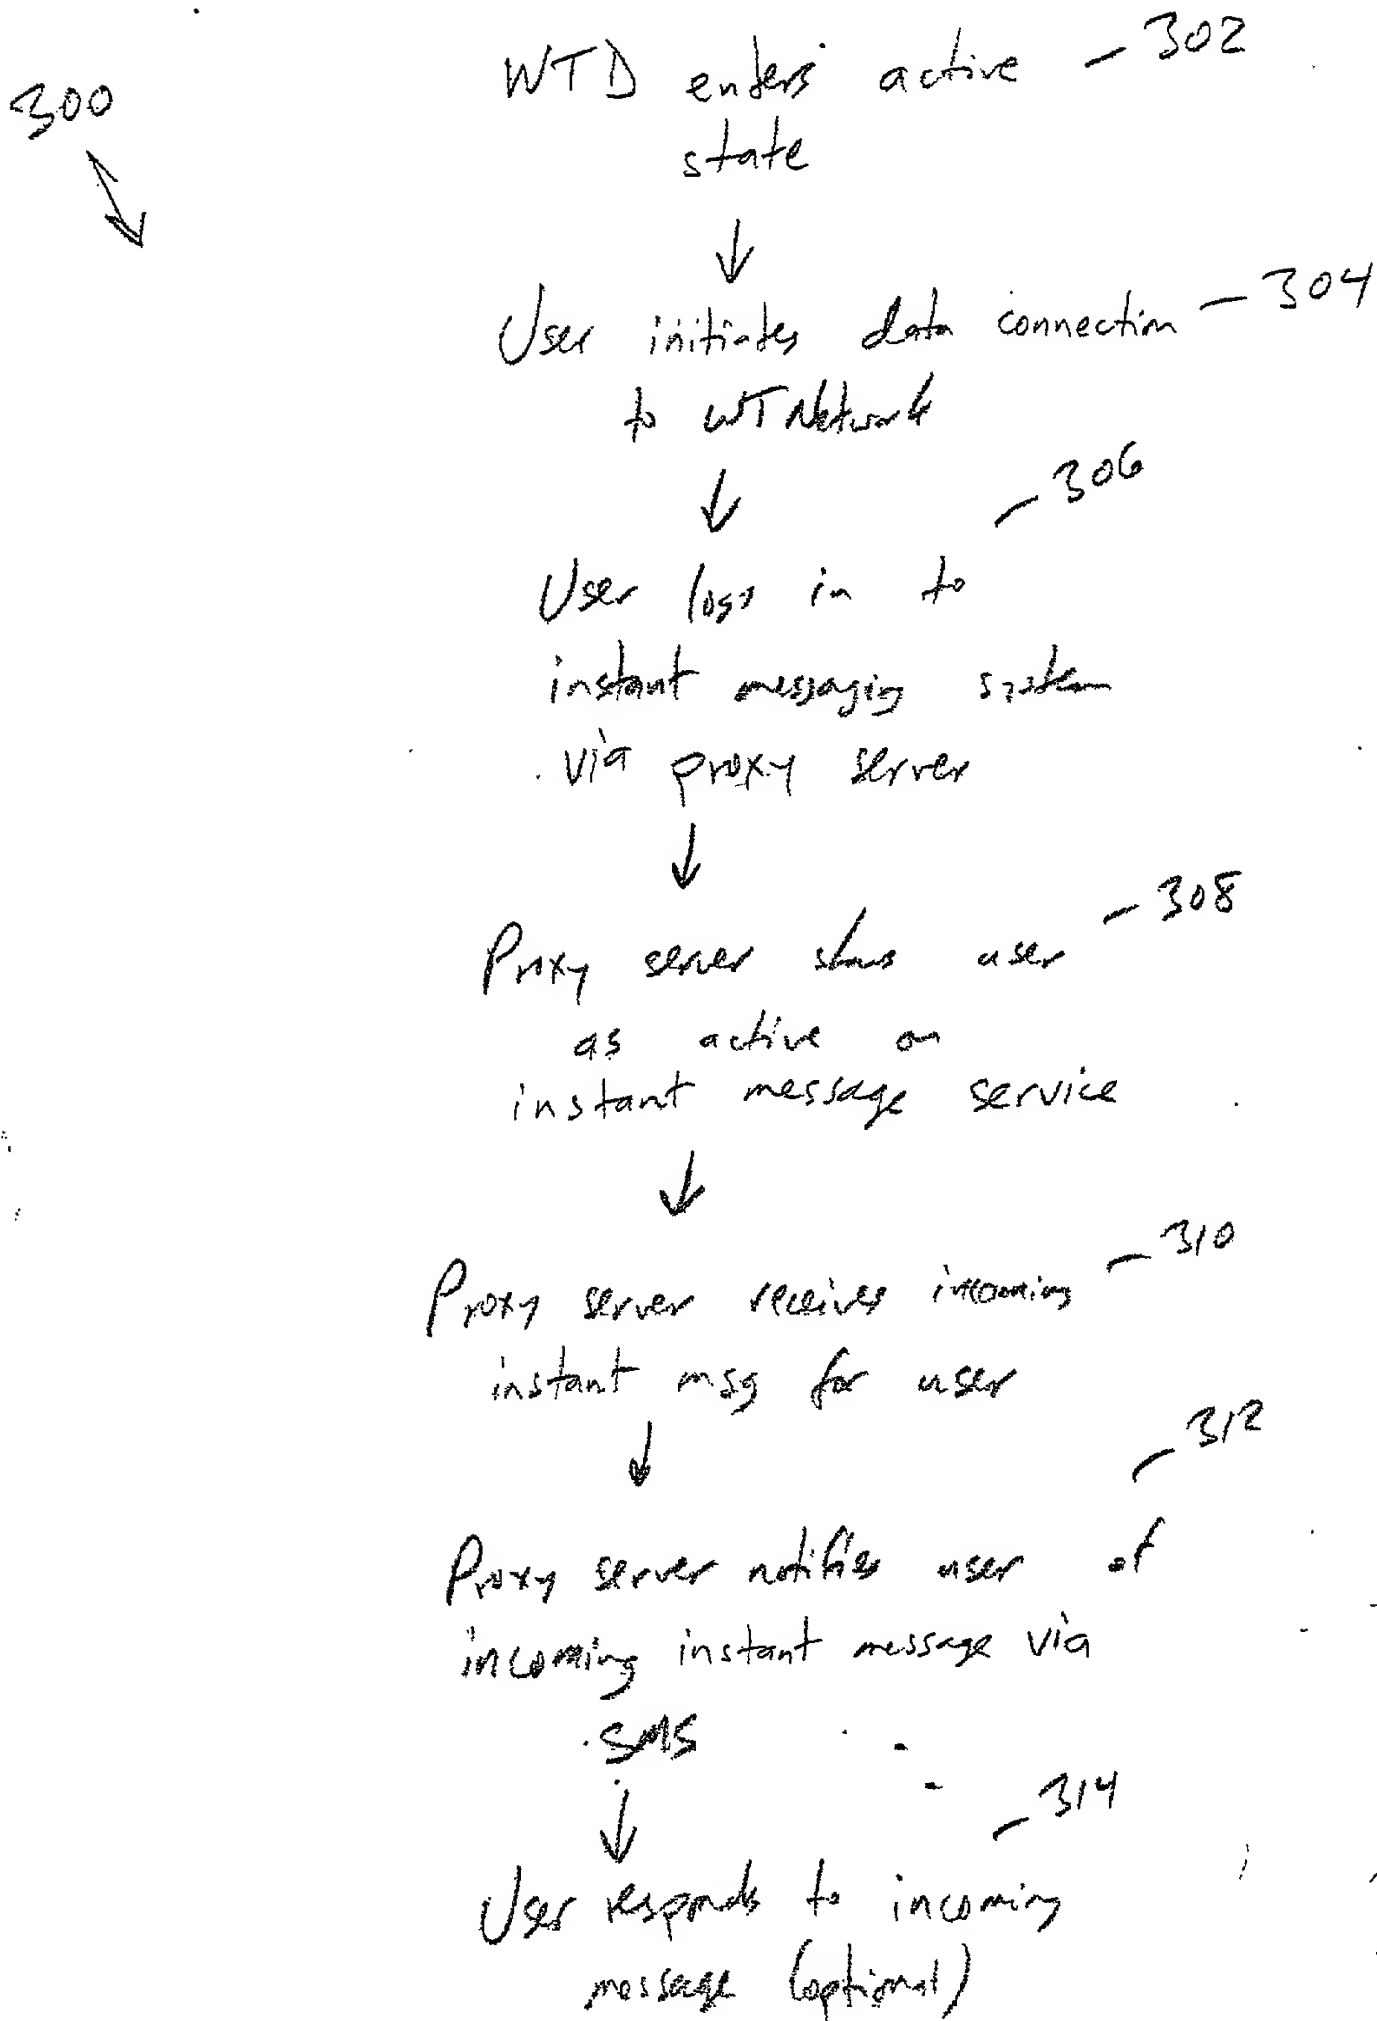 WTD enters active - 302
300
state
User initiates data connection - 304
to WT Network
- 306
User logs in to
instant messaging system
via proxy server
- 308
Proxy server shows user
as active on
instant message service
- 310
Proxy server receives incoming
instant msg for user
- 312
Proxy server notifies user of
incoming instant message via
SMS
- 314
User responds to incoming
message (optional)